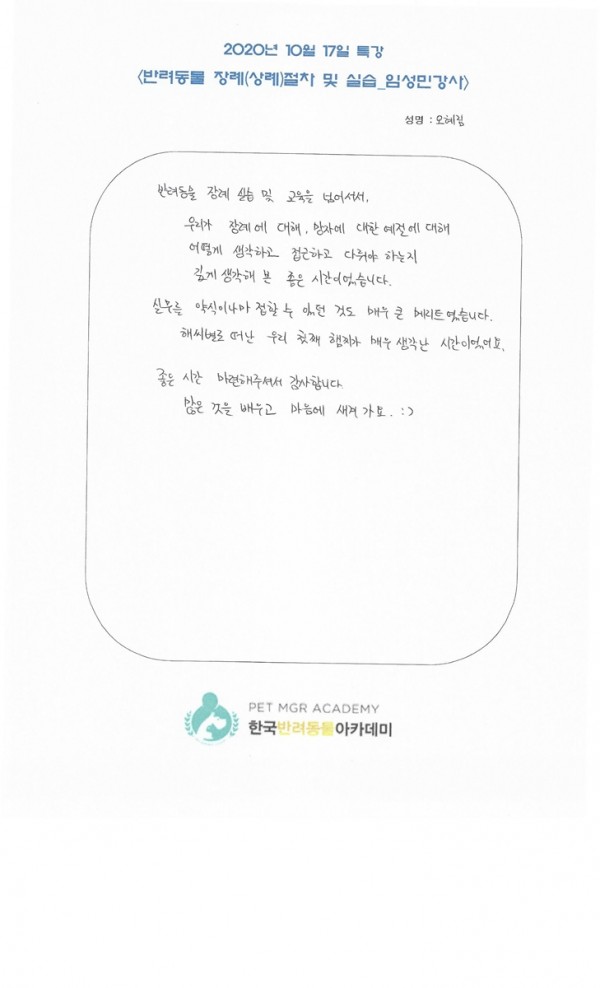 2020년 10월 17일 특강
<반려동물 장례(상례)절차 및 실습_임성민강사>
성명 : 오혜림
반려동물 장례 실습 및 교육을 넘어서서,
우리가 장례에 대해, 망자에 대한 예절에 대해
어떻게 생각하고 접근하고 다뤄야 하는지
깊게 생각해 본 좋은 시간이었습니다.
실무를 약식이나마 접할 수 있던 것도 매우 큰 메리트였습니다.
해씨별로 떠난 우리 첫째 햄찌가 매우 생각난 시간이었어요.
좋은 시간 마련해주셔서 감사합니다.
많은 것을 배우고 마음에 새겨 가요. :)
PET MGR ACADEMY
한국반려동물아카데미